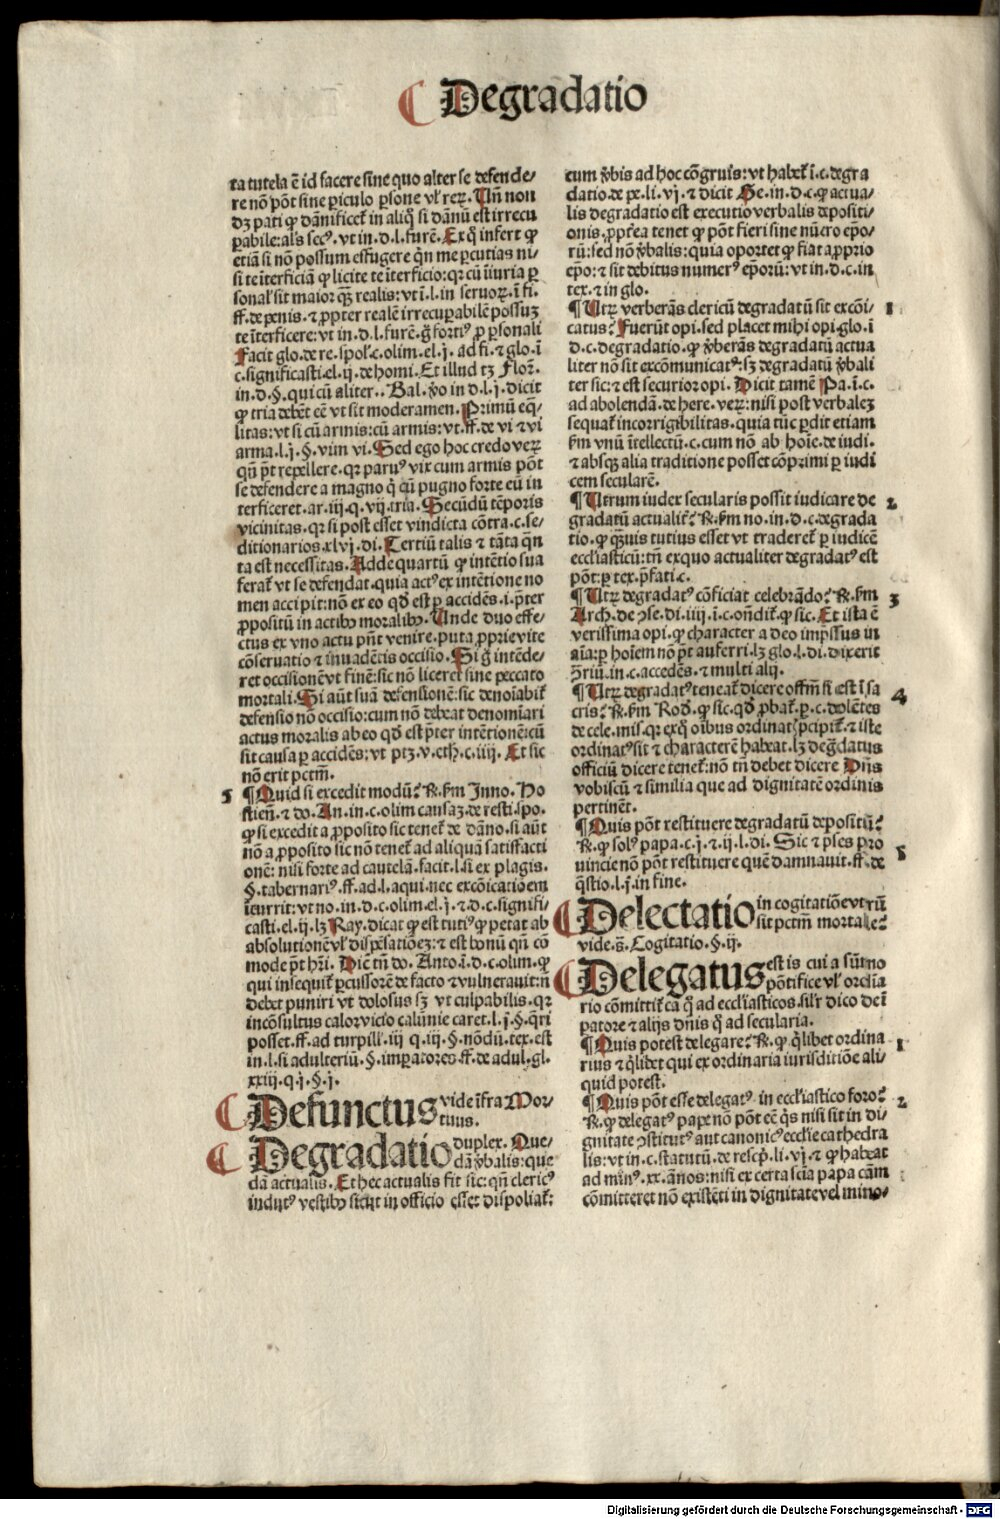 Degradatio
ta tutela ē id facere sine quo alter se defende/
re nō pōt sine ꝑiculo ꝑsone vl' reꝝ. Uñ non
dꝫ pati ꝙ dānificet̄ in aliq̄ si dānū est irrecu
ꝑabile: als secꝰ. vt in .d.l. furē. Ex q̄ infert ꝙ
etiā si nō possum effugere q̄n me ꝑcutias ni/
si te īterficiā ꝙ licite te īterficio: qꝛ cū īiuria ꝑ
sonal' sit maior q̄ꝫ realis: vt ī.l. in seruoꝝ. ī fi.
ff. de penis. ⁊ ꝓpter realē irrecuꝑabilē possuꝫ
te īterficere: vt in .d.l. furē. g̃ fortiꝰ ꝓ ꝑsonali
Facit glo. de re. spol'. c. olim. el .j. ad fi. ⁊ glo. ī
c. significasti. el .ij. de homi. Et illud tꝫ Floꝝ.
in .d.§. qui cū aliter.. Bal. ṽo in .d.l.j. dicit
ꝙ tria debēt eē vt sit moderamen. Primū eq̄/
litas: vt si cū armis: cū armis: vt .ff. de vi ⁊ vi
arma .l.j.§. vim vi. Sed ego hoc credo veꝝ
qn̄ p̄t repellere. qꝛ paruꝰ vix cum armis pōt
se defendere a magno q̇ qn̄ pugno forte eū in
terficeret. ar. iij. q. vij. tria. Secūdū tēporis
vicinitas. qꝛ si post esset vindicta cōtra .c. se/
ditionarios. xlvj. di. Tertiū talis ⁊ tāta q̄n
ta est necessitas. Adde quartū ꝙ intētio sua
ferat̄ vt se defendat. quia actꝰ ex intētione no
men accipit: nō ex eo qd̄ est ꝑ accidēs .i. p̄ter
ꝓpositū in actibꝰ moralibꝰ. Unde duo effe/
ctus ex vno actu pn̄t venire. puta ꝓprie vite
cōseruatio ⁊ inuadētis occisio. Si g̃ intēde/
ret occisionē vt finē: sic nō liceret sine peccato
mortali. Si aūt suā defensionē: sic denoīabit̄
defensio nō occisio: cum nō debeat denomīari
actus moralis ab eo qd̄ est p̄ter intētionē: cū
sit causa ꝑ accidēs: vt ptꝫ .v. eth̄. c. iiij. Et sic
nō erit pctm̄.
5 ¶ Quid si excedit modū? R̄. s̄m Inno. Ho
stien̄. ⁊ do. An. in .c. olim causaꝫ. de resti. spo.
ꝙ si excedit a ꝓposito sic tenet̄ de dāno. si aūt
nō a ꝓposito sic nō tenet̄ ad aliquā satisfacti
onē: nisi forte ad cautelā. facit .l. si ex plagis.
§. tabernariꝰ. ff. ad .l. aqui. nec excōicationem
īcurrit: vt no. in .d.c. olim. el .j. ⁊ .d.c. signifi/
casti. el .ij. lꝫ Ray. dicat ꝙ est tutiꝰ ꝙ petat ab
absolutionē vl' disp̄sationeꝫ: ⁊ est bonū qn̄ cō
mode p̄t hr̄i. Dic̄ tn̄ do. Anto. ī .d.c. olim. ꝙ
qui insequit̄ ꝑcussorē de facto ⁊ vulnerauit: n̄
debet puniri vt dolosus sꝫ vt culpabilis. qꝛ
incōsultus calor vicio calūnie caret .l.j.§. q̄ri
posset. ff. ad turpill'. iij q. iij. §. nōdū. tex. est
in .l. si adulteriū. §. imꝑatores. ff. de adul. gl.
xxiij. q. j. §. j.
Defunctus vide īfra Mor/
tuus.
Degradatio duplex. Que/
dā ṽbalis: que
dā actualis. Et hec actualis fit sic: qn̄ clericꝰ
indutꝰ vestibꝰ sicut in officio esset dispoliat̄:
cum ṽbis ad hoc cōgruis: vt habet̄ ī .c. degra
datio. de pe. li. vj. ⁊ dicit Ge. in .d.c. ꝙ actua/
lis degradatio est executio verbalis depositi/
onis. ꝓpterea tenet ꝙ pōt fieri sine nūero epō/
rū: sed nō ṽbalis: quia oportet ꝙ fiat a ꝓprio
epō: ⁊ sit debitus numerꝰ epōrū: vt in .d.c. in
tex. ⁊ in glo.
¶ Utꝝ verberās clericū degradatū sit excōi/ 1
catus? Fuerūt opi. sed placet mihi opi. glo. ī
d.c. degradatio. ꝙ ṽberās degradatū actua
liter nō sit excōmunicatꝰ: sꝫ degradatū ṽbali
ter sic: ⁊ est securior opi. Dicit tamē Pa. ī .c.
ad abolendā. de here. veꝝ: nisi post verbaleꝫ
sequat̄ incorrigibilitas. quia tūc ꝑdit etiam
s̄m vnū ītellectū .c. cum nō ab hoīe. de iudi.
⁊ absqꝫ alia traditione posset cōprimi ꝑ iudi
cem secularē.
¶ Utrum iudex secularis possit iudicare de 2
gradatū actualit̄? R̄. s̄m no. in .d.c. degrada
tio. ꝙ q̄ꝫuis tutius esset vt traderet̄ ꝑ iudicē
ecclīasticū: tn̄ exquo actualiter degradatꝰ est
pōt: ꝑ tex. p̄fati .c.
¶ Utꝝ degradatꝰ cōficiat celebrādo? R̄. s̄m 3
Arch. de ꝯse. di. iiij. ī .c. on̄dit̄. ꝙ sic. Et ista ē
verissima opi. ꝙ character a deo imp̄ssus in
aīa: ꝑ hoīem nō p̄t auferri. lꝫ glo. l. di. dixerit
ꝯ̄riū. in .c. accedēs. ⁊ multi alij.
¶ Utꝝ degradatꝰ teneat̄ dicere offm̄ si est ī sa 4
cris? R̄. s̄m Rod̄. ꝙ sic. qd̄ ꝓbat̄. ꝑ .c. dolētes
de cele. mis. qꝛ ex q̄ oībus ordinat̄ p̄cipit̄. ⁊ iste
ordinatꝰ sit ⁊ characterē habeat. lꝫ deg̃datus
officiū dicere tenet̄: nō tn̄ debet dicere Dn̄s
vobiscū ⁊ similia que ad dignitatē ordinis
pertinēt.
¶ Quis pōt restituere degradatū depositū?
R̄. ꝙ solꝰ papa .c.j. ⁊ .ij. l. di. Sic ⁊ p̄ses pro 5
uincie nō pōt restituere quē damnauit. ff. de
q̄stio. l.j. in fine.
Delectatio in cogitatiōe vtrū
sit pctm̄ mortale?
vide .s̄. Cogitatio. §. ij.
Delegatus est is cui a sūmo
pōtifice vl' ordīa
rio cōmittit̄ cā q̄ ad ecclīasticos. sil'r dico de ī
patore ⁊ alijs dn̄is q̄ ad secularia.
¶ Quis potest delegare? R̄. ꝙ q̄libet ordina 1
rius ⁊ q̄libet qui ex ordinaria iurisditiōe ali/
quid potest.
¶ Quis pōt esse delegatꝰ in ecclīastico foro? 2
R̄. ꝙ delegatꝰ pape nō pōt eē q̇s nisi sit in di/
gnitate ꝯstitutꝰ aut canonicꝰ ecclīe cathedra
lis: vt in .c. statutū. de rescp̄. li. vj. ⁊ ꝙ habeat
ad minꝰ .xx. ānos: nisi ex certa scīa papa cām
cōmitteret nō existēti in dignitate vel mino/
Digitalisierung gefördert durch die Deutsche Forschungsgemeinschaft - DFG